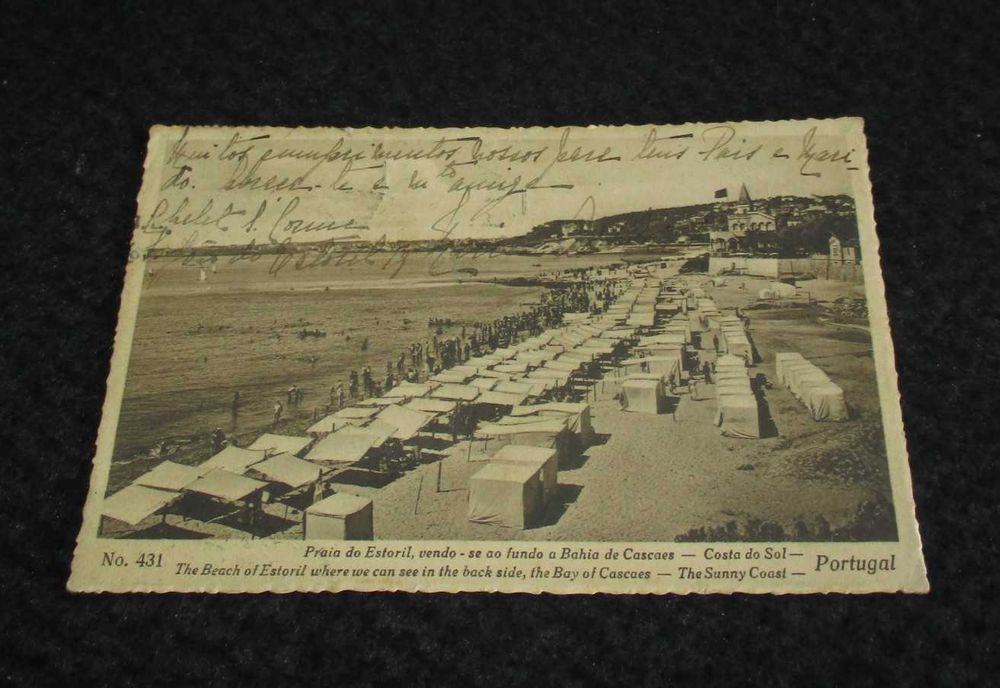 Muitos cumprimentos nossos para teus Pais e Mari-
do. Abrace-te a mto amiga
Chalet S.
do Estoril
No. 431
Praia do Estoril, vendo-se ao fundo a Bahia de Cascaes — Costa do Sol —
The Beach of Estoril where we can see in the back side, the Bay of Cascaes — The Sunny Coast —
Portugal